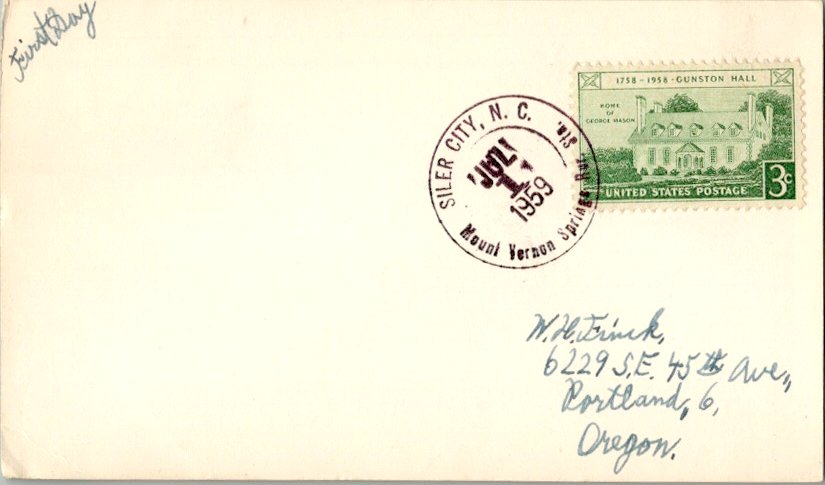 First Day
1758 - 1958 · GUNSTON HALL
HOME
OF
GEORGE MASON
UNITED STATES POSTAGE
3c
SILER CITY, N. C.
JUL
1
1959
Mount Vernon Springs Sta.
W. H. Finck,
6229 S.E. 45th Ave.,
Portland, 6,
Oregon.